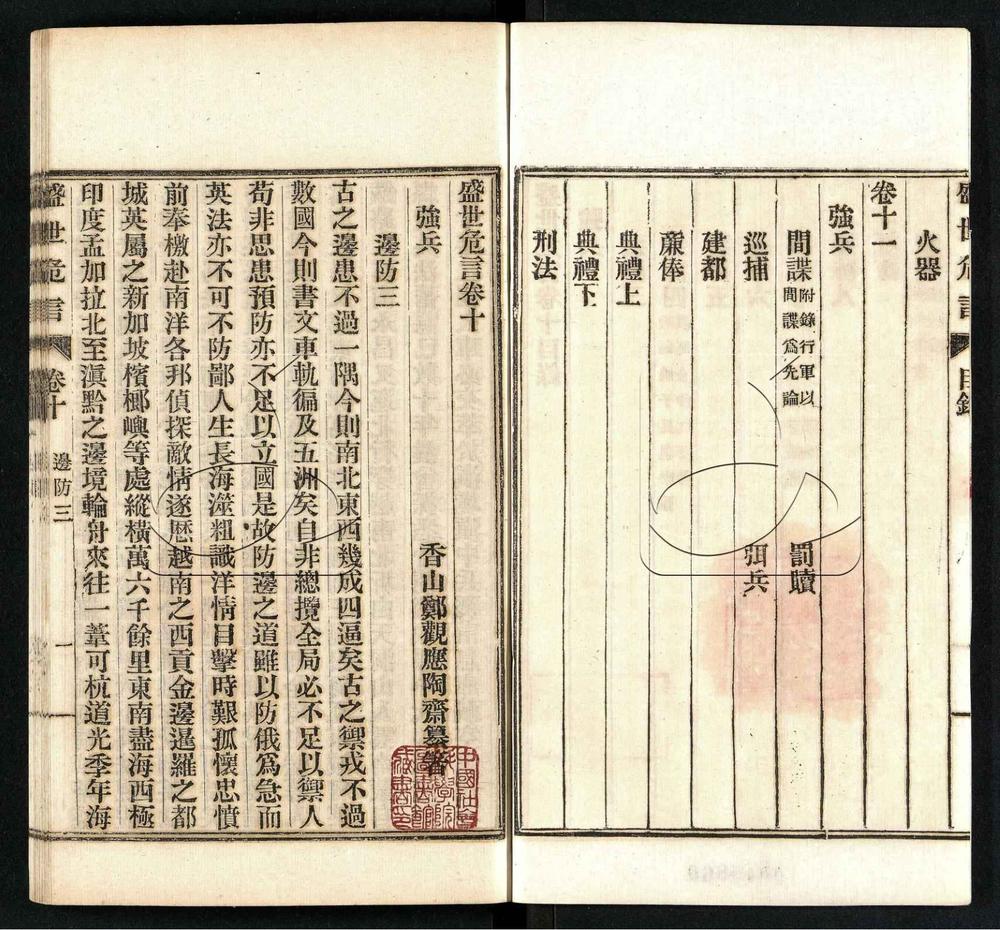 盛世危言
目錄
火器
卷十一
強兵
間諜 附錄行軍以間諜爲先論
罰贖
巡捕
弭兵
建都
廉俸
典禮上
典禮下
刑法
盛世危言卷十
強兵
香山鄭觀應陶齋纂著
邊防三
古之邊患不過一隅今則南北東西幾成四逼矣古之禦戎不過
數國今則書文車軌徧及五洲矣自非總攬全局必不足以禦人
苟非思患預防亦不足以立國是故防邊之道雖以防俄爲急而
英法亦不可不防鄙人生長海澨粗識洋情目擊時艱孤懷忠憤
前奉檄赴南洋各邦偵探敵情遂歷越南之西貢金邊暹羅之都
城英屬之新加坡檳榔嶼等處縱橫萬六千餘里東南盡海西極
印度孟加拉北至滇黔之邊境輪舟來往一葦可杭道光季年海
盛世危言
卷十
邊防三
一